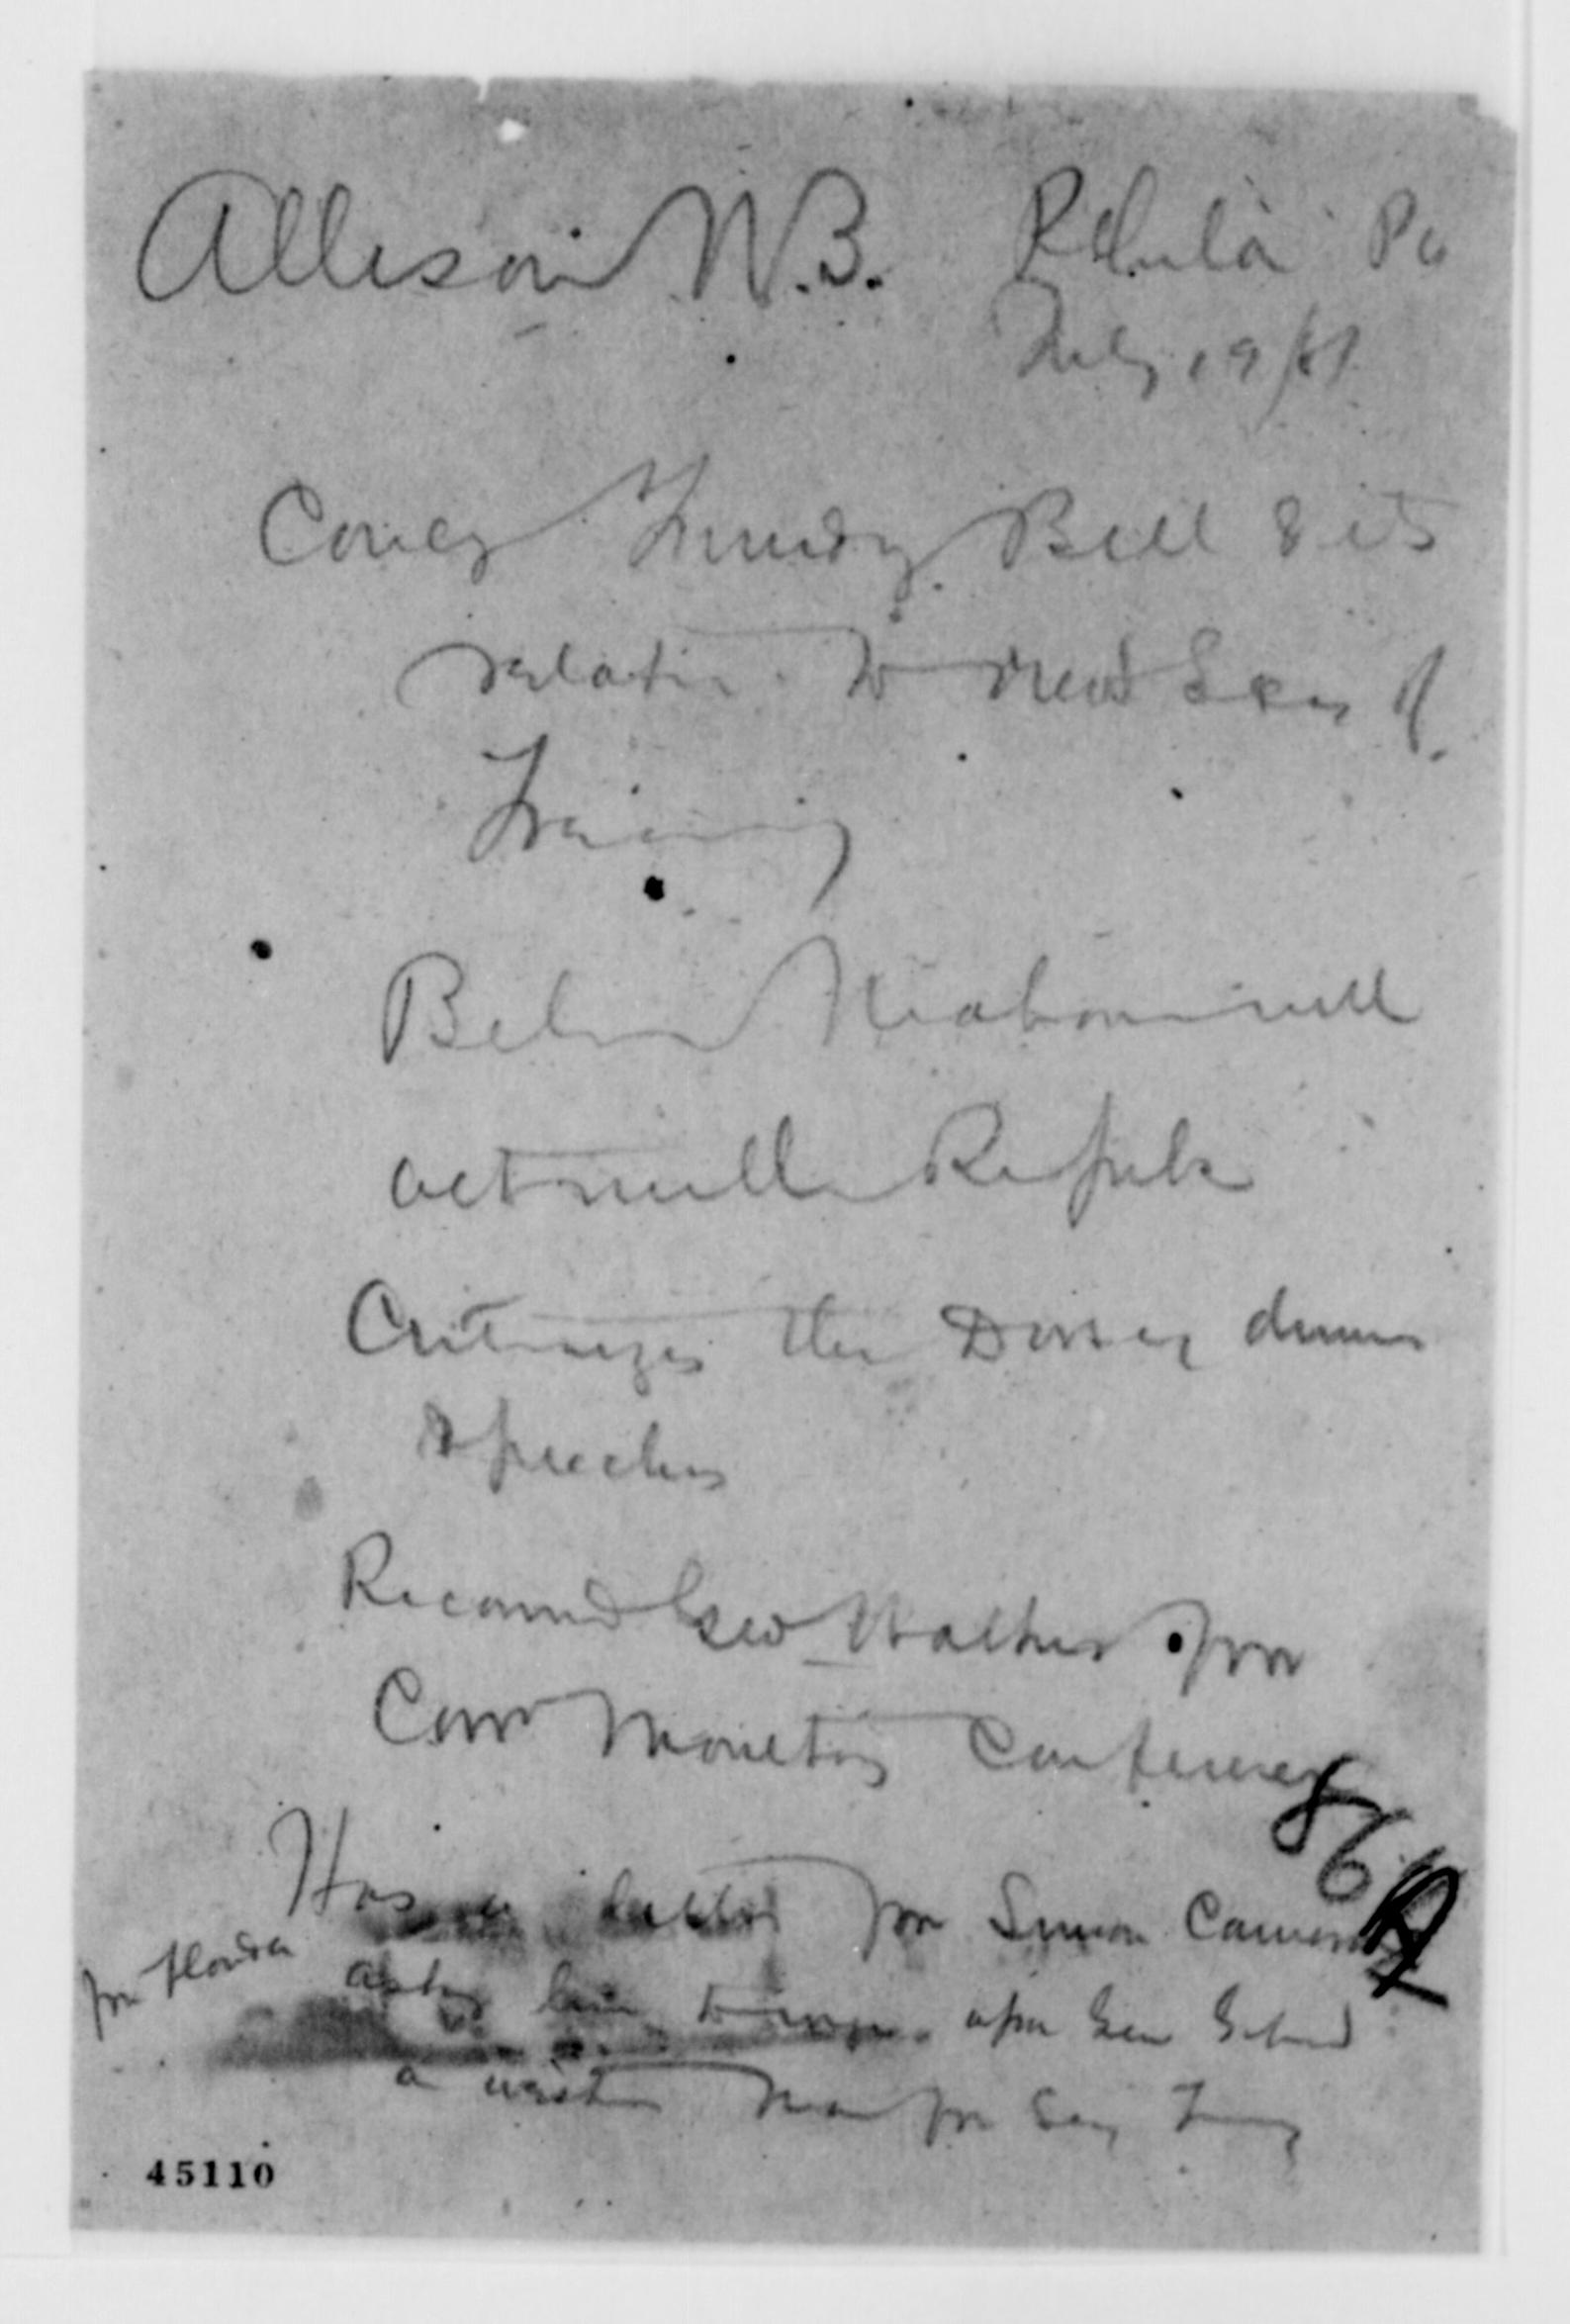 Allison W.B. Phila Pa
Feby 19/81
Concg Funding Bill & its
relation to next Secy of
Treasury
Believes Mahone will
act with Repubs
Criticizes the Dorsey dinner
& speeches
Recomd Geo Walker for
Comr Monetary Conference
Has a letter from Simon Cameron
from Florida
asking him to urge upon Gen Garfield
a western man for Secy Treasy
86
45110